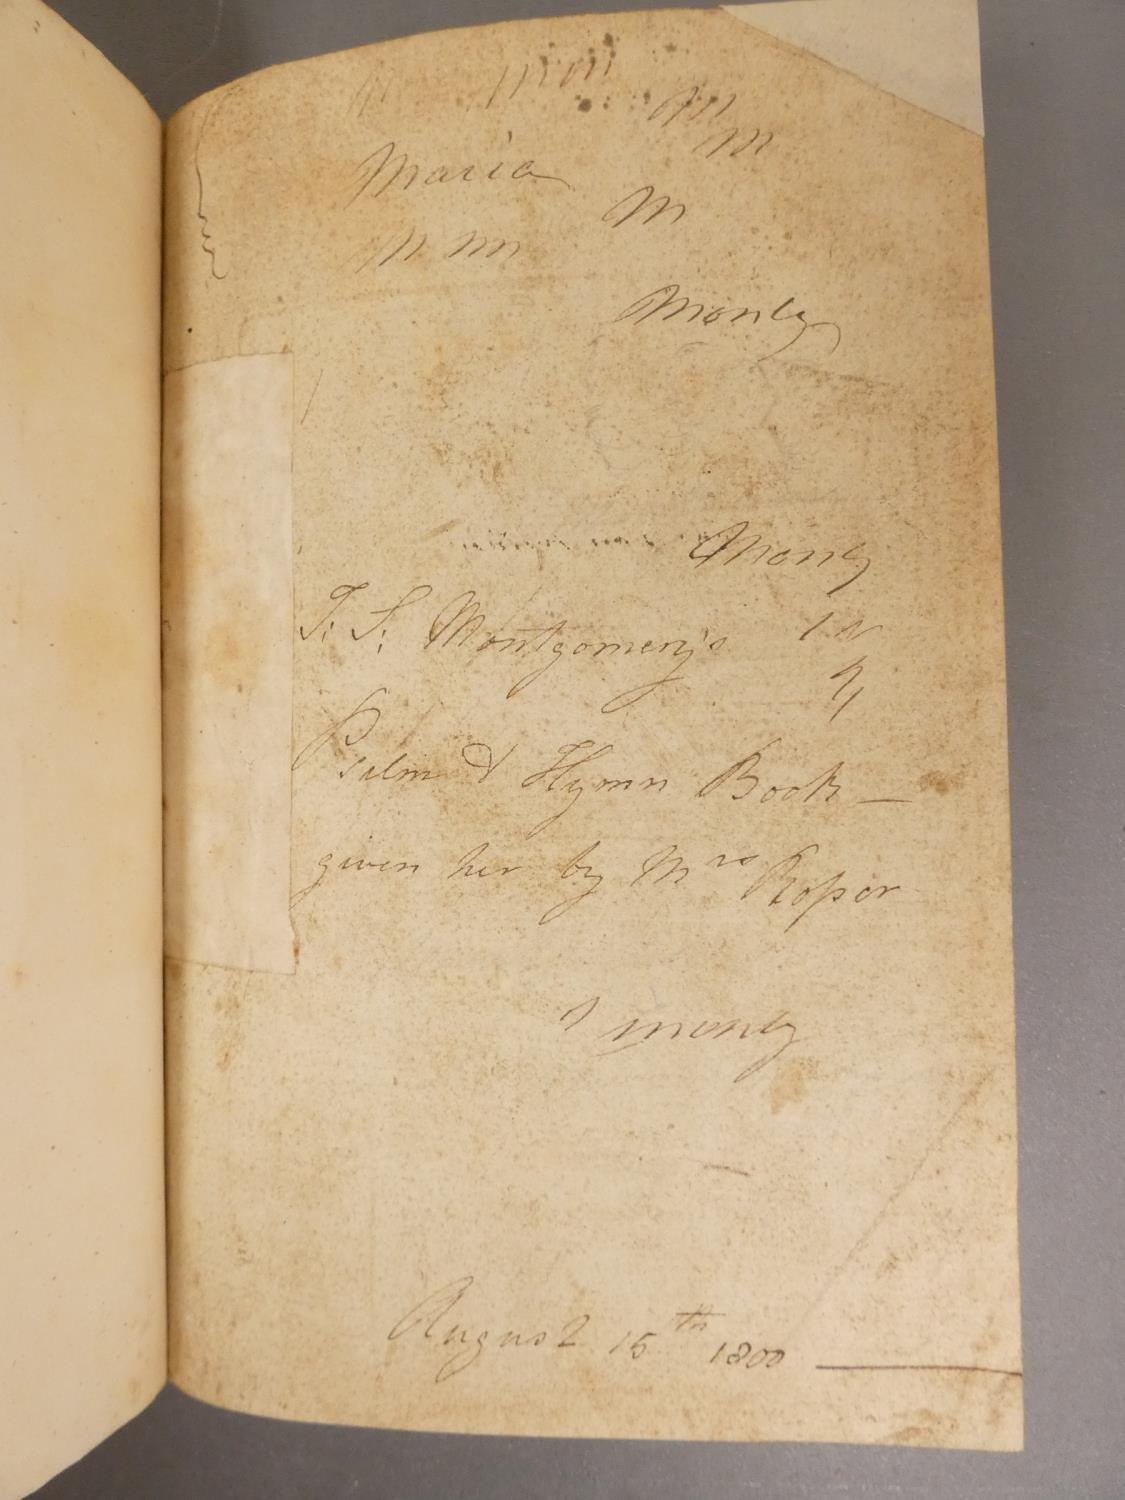 m mon
M
m
Maria
M
m mn
Money
Money
T. S. Montgomery's
Psalm & Hymn Book —
given her by Mrs Roper
money
August 15th 1800